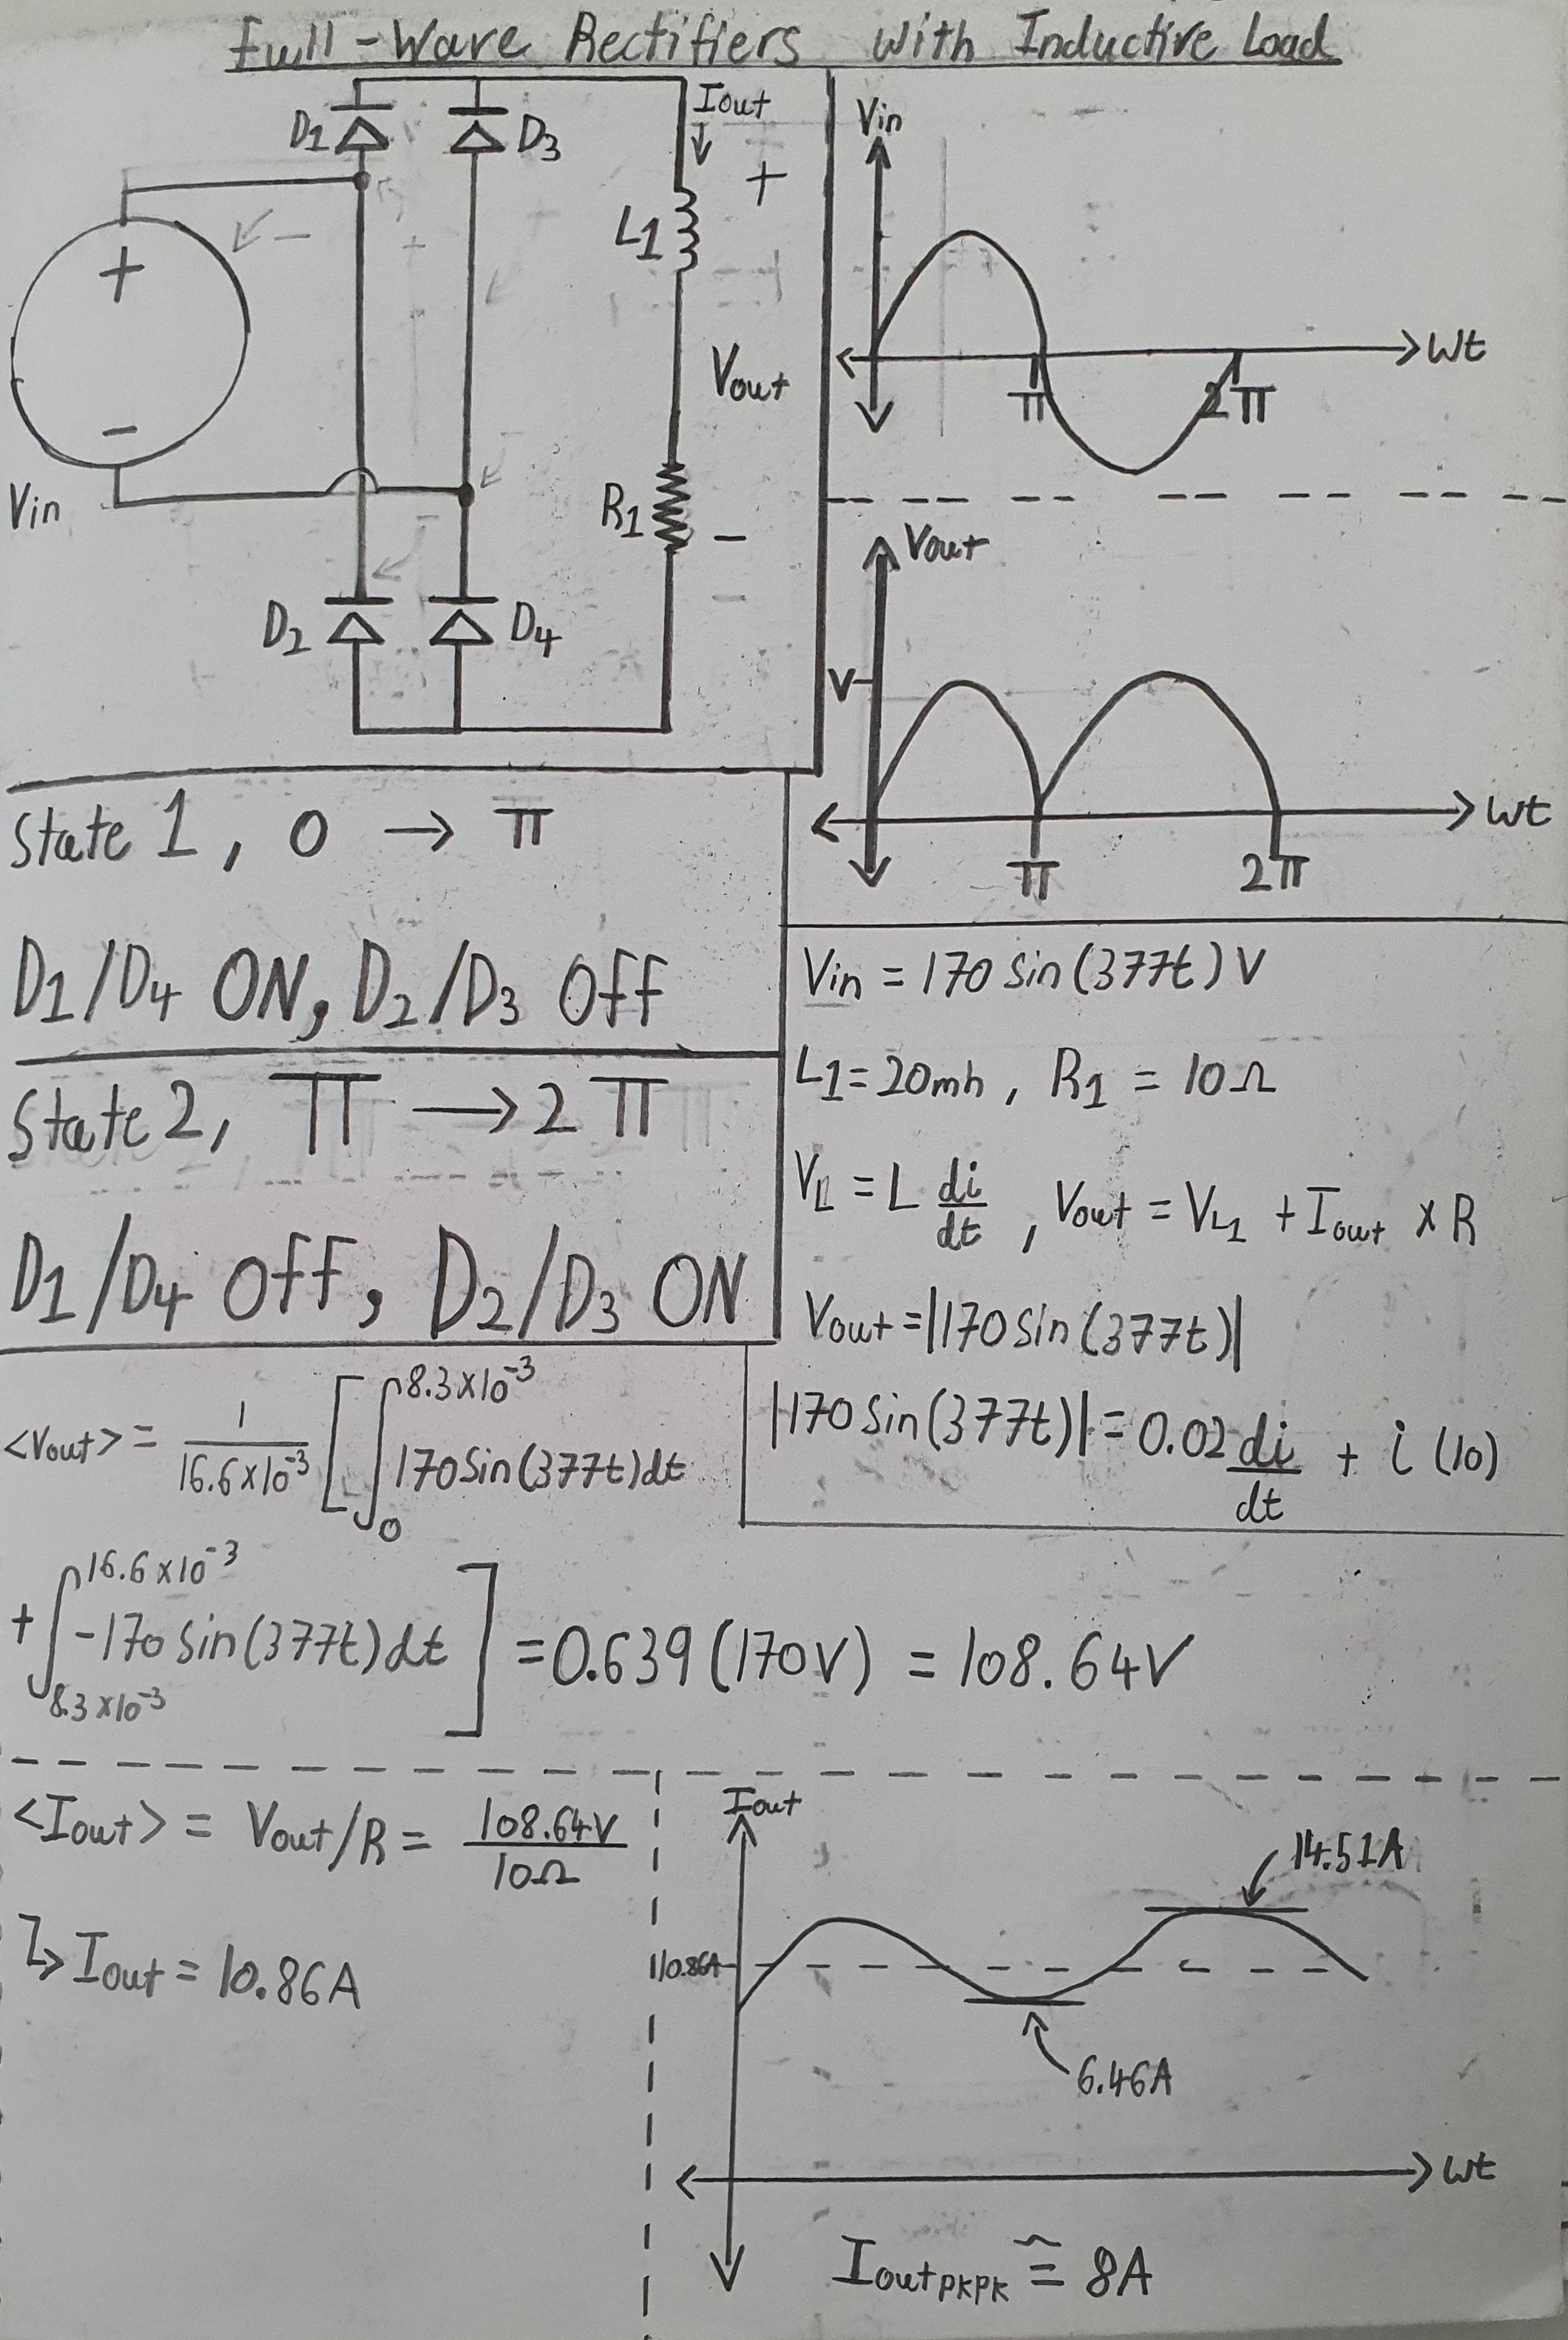 Full-Wave Rectifiers with Inductive Load
D1
D3
Iout
↓
+
+
L1
Vout
−
Vin
R1
−
D2
D4
Vin
wt
π
2π
Vout
V
wt
π
2π
State 1, 0 → π
D1/D4 ON, D2/D3 Off
State 2, π → 2π
D1/D4 Off, D2/D3 ON
Vin = 170 sin(377t) V
L1 = 20mh, R1 = 10Ω
VL = L di/dt, Vout = VL1 + Iout × R
Vout = |170 sin(377t)|
|170 sin(377t)| = 0.02 di/dt + i (10)
<Vout> = 1/16.6×10⁻³ [ ∫₀^8.3×10⁻³ 170 sin(377t) dt
+ ∫_8.3×10⁻³^16.6×10⁻³ -170 sin(377t) dt ] = 0.639 (170V) = 108.64V
<Iout> = Vout/R = 108.64V/10Ω
↳ Iout = 10.86A
Iout
14.51A
10.86A
6.46A
wt
Ioutpkpk ≅ 8A